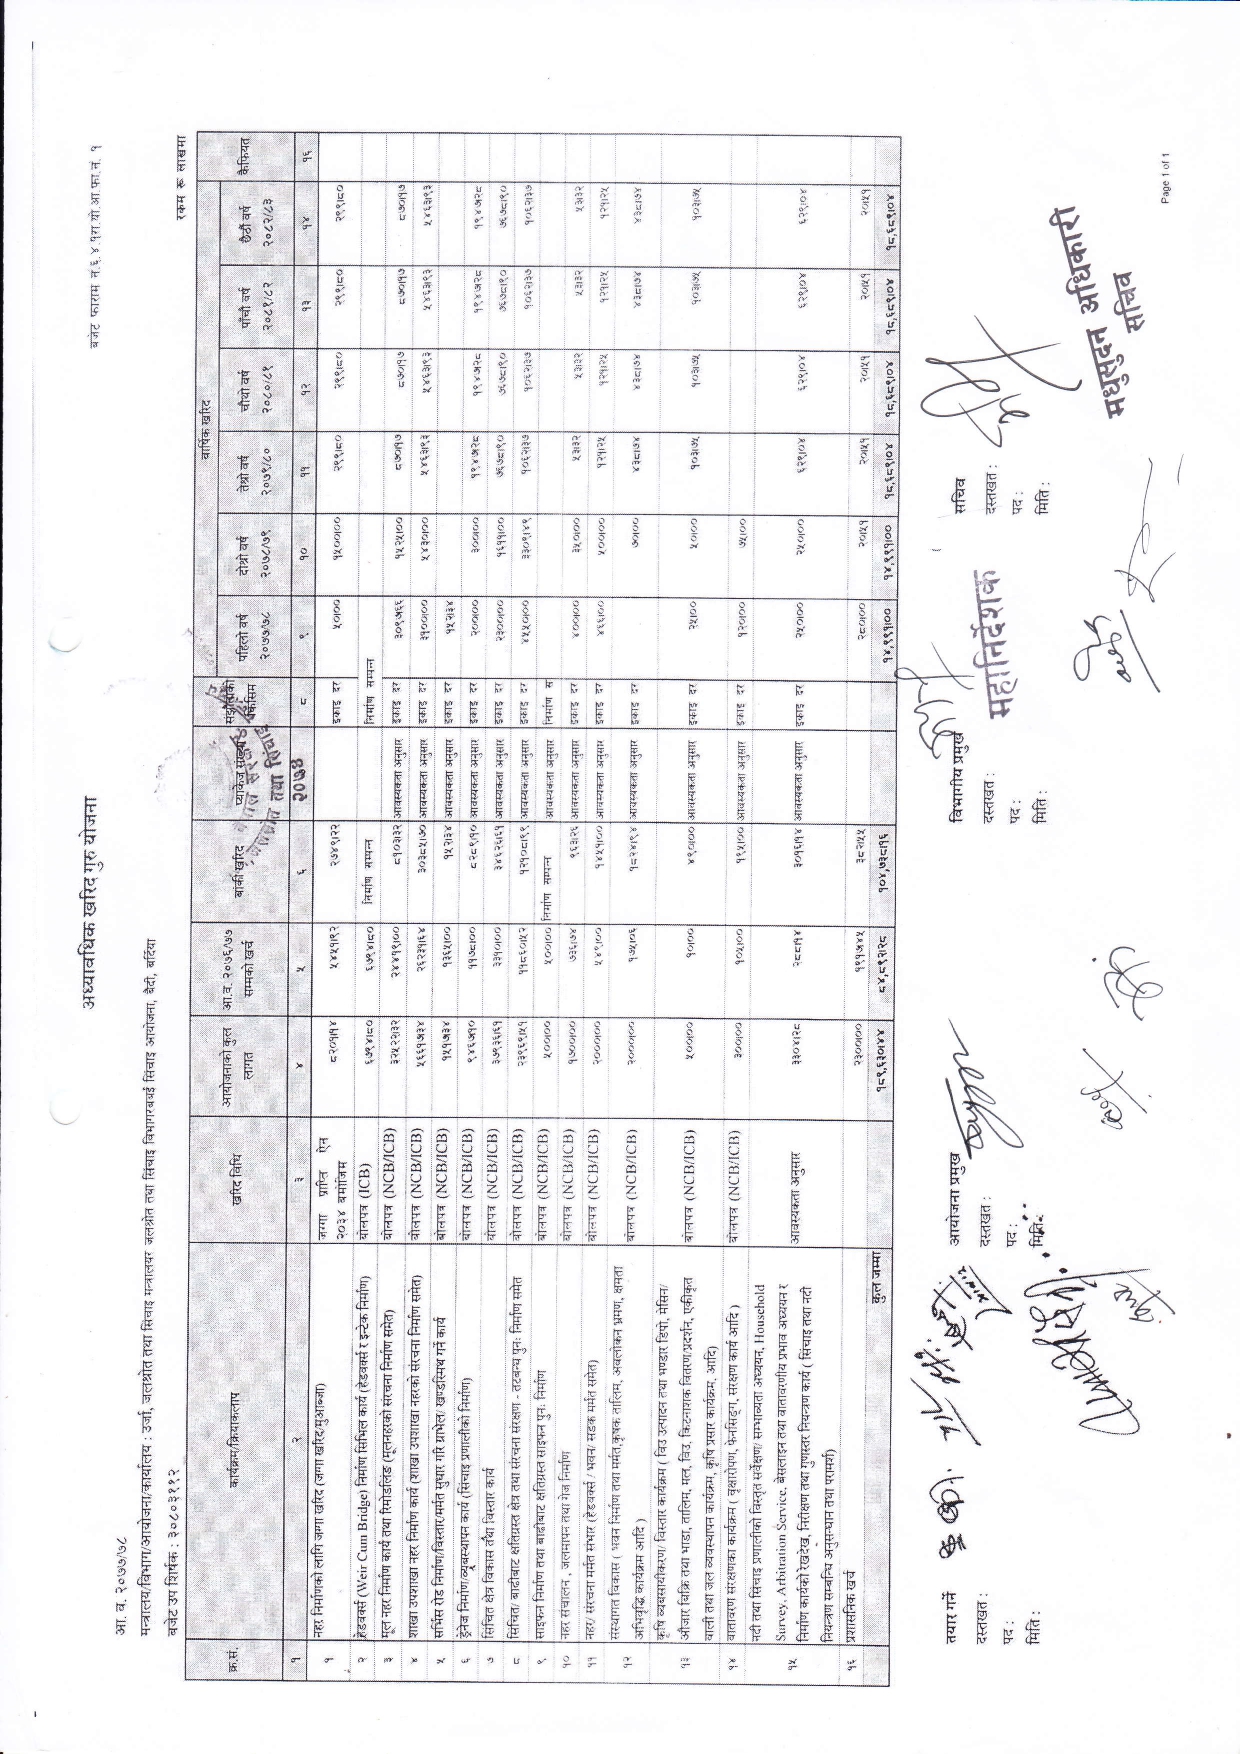 बजेट फाराम नं.६.४.१रा.यो.आ.फा.नं. १
अध्यावधिक खरिद गुरु योजना
आ. व. २०७७/७८
मन्त्रालय/विभाग/आयोजना/कार्यालय : उर्जा, जलश्रोत तथा सिंचाइ मन्त्रालय जलश्रोत तथा सिंचाइ विभागरबबई सिंचाइ आयोजना, बैदी, बर्दिया
बजेट उप शिर्षक : ३०८०३११२
रकम रू लाखमा
क्र.सं. कार्यक्रम/क्रियाकलाप खरिद विधि आयोजनाको कुल लागत आ.व. २०७६/७७ सम्मको खर्च बांकी खरिद प्याकेज संख्या वार्षिक खरिद कैफियत
पहिलो वर्ष २०७७/७८ दोश्रो वर्ष २०७८/७९ तेश्रो वर्ष २०७९/८० चौथो वर्ष २०८०/८१ पाँचौ वर्ष २०८१/८२ छैठौं वर्ष २०८२/८३
१ २ ३ ४ ५ ६ ८ ९ १० ११ १२ १३ १४ १६
१ नहर निर्माणको लागि जग्गा खरिद (जग्गा खरिद/मुआब्जा) जग्गा प्राप्ति ऐन २०३४ बमोजिम ८२०१।१४ ५४५१।९२ २७४९।२२ इकाइ दर ५०।०० १५००।०० २९९।८० २९९।८० २९९।८० २९९।८०
२ हेडवर्क्स (Weir Cum Bridge) निर्माण सिभिल कार्य (हेडवर्क्स र इन्टेक निर्माण) बोलपत्र (ICB) ६७९४।८० ६७९४।८० निर्माण सम्पन्न निर्माण सम्पन्न
३ मूल नहर निर्माण कार्य तथा रिमोडलिंङ (मूलनहरको संरचना निर्माण समेत) बोलपत्र (NCB/ICB) ३२५२२।३२ २४४१९।०० ८१०३।३२ आवश्यकता अनुसार इकाइ दर ३०९७।६६ १५२५।०० ८७०।१७ ८७०।१७ ८७०।१७ ८७०।१७
४ शाखा उपशाखा नहर निर्माण कार्य (शाखा उपशाखा नहरको संरचना निर्माण समेत) बोलपत्र (NCB/ICB) ५६६१७।३४ २६२३१।६४ ३०३८५।७० आवश्यकता अनुसार इकाइ दर ३१००।०० ५४३०।०० ५४६३।९३ ५४६३।९३ ५४६३।९३ ५४६३।९३
५ सर्भिस रोड निर्माण/विस्तार/मर्मत सुधार गरि ग्राभेल/ खण्डस्मिथ गर्ने कार्य बोलपत्र (NCB/ICB) १५१७।३४ १३६५।०० १५२।३४ आवश्यकता अनुसार इकाइ दर १५२।३४
६ ड्रेनेज निर्माण/व्यबस्थापन कार्य (सिंचाइ प्रणालीको निर्माण) बोलपत्र (NCB/ICB) ९४६७।१० ११७८।०० ८२८९।१० आवश्यकता अनुसार इकाइ दर २००।०० ३००।०० १९४७।२८ १९४७।२८ १९४७।२८ १९४७।२८
७ सिंचित क्षेत्र विकास तथा विस्तार कार्य बोलपत्र (NCB/ICB) ३७९३६।६१ ३३१०।०० ३४६२६।६१ आवश्यकता अनुसार इकाइ दर २३००।०० १६११।०० ७६७८।९० ७६७८।९० ७६७८।९० ७६७८।९०
८ सिंचित/ बाढीबाट क्षतिग्रस्त क्षेत्र तथा संरचना संरक्षण - तटबन्ध पुनः निर्माण समेत बोलपत्र (NCB/ICB) २३९६९।५१ ११८६०।५२ १२१०८।९९ आवश्यकता अनुसार इकाइ दर ४५५०।०० ३३०९।४९ १०६२।३७ १०६२।३७ १०६२।३७ १०६२।३७
९ साइफन निर्माण तथा बाढीबाट क्षतिग्रस्त साइफन पुनः निर्माण बोलपत्र (NCB/ICB) ५००।०० ५००।०० निर्माण सम्पन्न आवश्यकता अनुसार निर्माण स
१० नहर संचालन , जलमापन तथा गेज निर्माण बोलपत्र (NCB/ICB) १७००।०० ७३६।७४ ९६३।२६ आवश्यकता अनुसार इकाइ दर ४००।०० ३५०।०० ५३।३२ ५३।३२ ५३।३२ ५३।३२
११ नहर/ संरचना मर्मत संभार (हेडवर्क्स / भवन/ सडक मर्मत समेत) बोलपत्र (NCB/ICB) २०००।०० ५४९।०० १४५१।०० आवश्यकता अनुसार इकाइ दर ४६६।०० ५००।०० १२१।२५ १२१।२५ १२१।२५ १२१।२५
१२ संस्थागत विकास ( भवन निर्माण तथा मर्मत,कृषक तालिम, अवलोकन भ्रमण, क्षमता अभिवृद्धि कार्यक्रम आदि ) बोलपत्र (NCB/ICB) २०००।०० १७५।०६ १८२४।९४ आवश्यकता अनुसार इकाइ दर ७०।०० ४३८।७४ ४३८।७४ ४३८।७४ ४३८।७४
१३ कृषि व्यबसायीकरण/ विस्तार कार्यक्रम ( विउ उत्पादन तथा भण्डार डिपो, मेसिन/ औजार बिक्रि तथा भाडा, तालिम, मल, विउ, किटनाशक वितरण/प्रदर्शन, एकीकृत वाली तथा जल व्यवस्थापन कार्यक्रम, कृषि प्रसार कार्यक्रम, आदि) बोलपत्र (NCB/ICB) ५००।०० १०।०० ४९०।०० आवश्यकता अनुसार इकाइ दर २५।०० ५०।०० १०३।७५ १०३।७५ १०३।७५ १०३।७५
१४ वातावरण संरक्षणका कार्यक्रम ( वृक्षारोपण, फेनसिङ्ग, संरक्षण कार्य आदि ) बोलपत्र (NCB/ICB) ३००।०० १०५।०० १९५।०० आवश्यकता अनुसार इकाइ दर १२०।०० ७५।००
१५ नदी तथा सिंचाइ प्रणालीको विस्तृत सर्वेक्षण/ सम्भाव्यता अध्ययन, Household Survey, Arbitration Service, बेसलाइन तथा वातावरणीय प्रभाव अध्ययन र निर्माण कार्यको रेखदेख, निरीक्षण तथा गुणस्तर नियन्त्रण कार्य ( सिंचाइ तथा नदी नियन्त्रण सम्बन्धि अनुसन्धान तथा परामर्श) आवश्यकता अनुसार ३३०४।२८ २८८।१४ ३०१६।१४ आवश्यकता अनुसार इकाइ दर २५०।०० २५०।०० ६२९।०४ ६२९।०४ ६२९।०४ ६२९।०४
१६ प्रशासनिक खर्च २३००।०० १९१७।४५ ३८२।५५ २८०।०० २०।५१ २०।५१ २०।५१ २०।५१ २०।५१
कुल जम्मा १८९,६३०।४४ ८४,८९२।२८ १०४,७३८।१६ १४,९९१।०० १४,९९१।०० १८,६८९।०४ १८,६८९।०४ १८,६८९।०४ १८,६८९।०४
तयार गर्ने
दस्तखत :
पद :
मिति :
आयोजना प्रमुख
दस्तखत :
पद :
मिति :
विभागीय प्रमुख
दस्तखत :
पद :
मिति :
महानिर्देशक
सचिव
दस्तखत :
पद :
मिति :
मधुसुदन अधिकारी
सचिव
Page 1 of 1